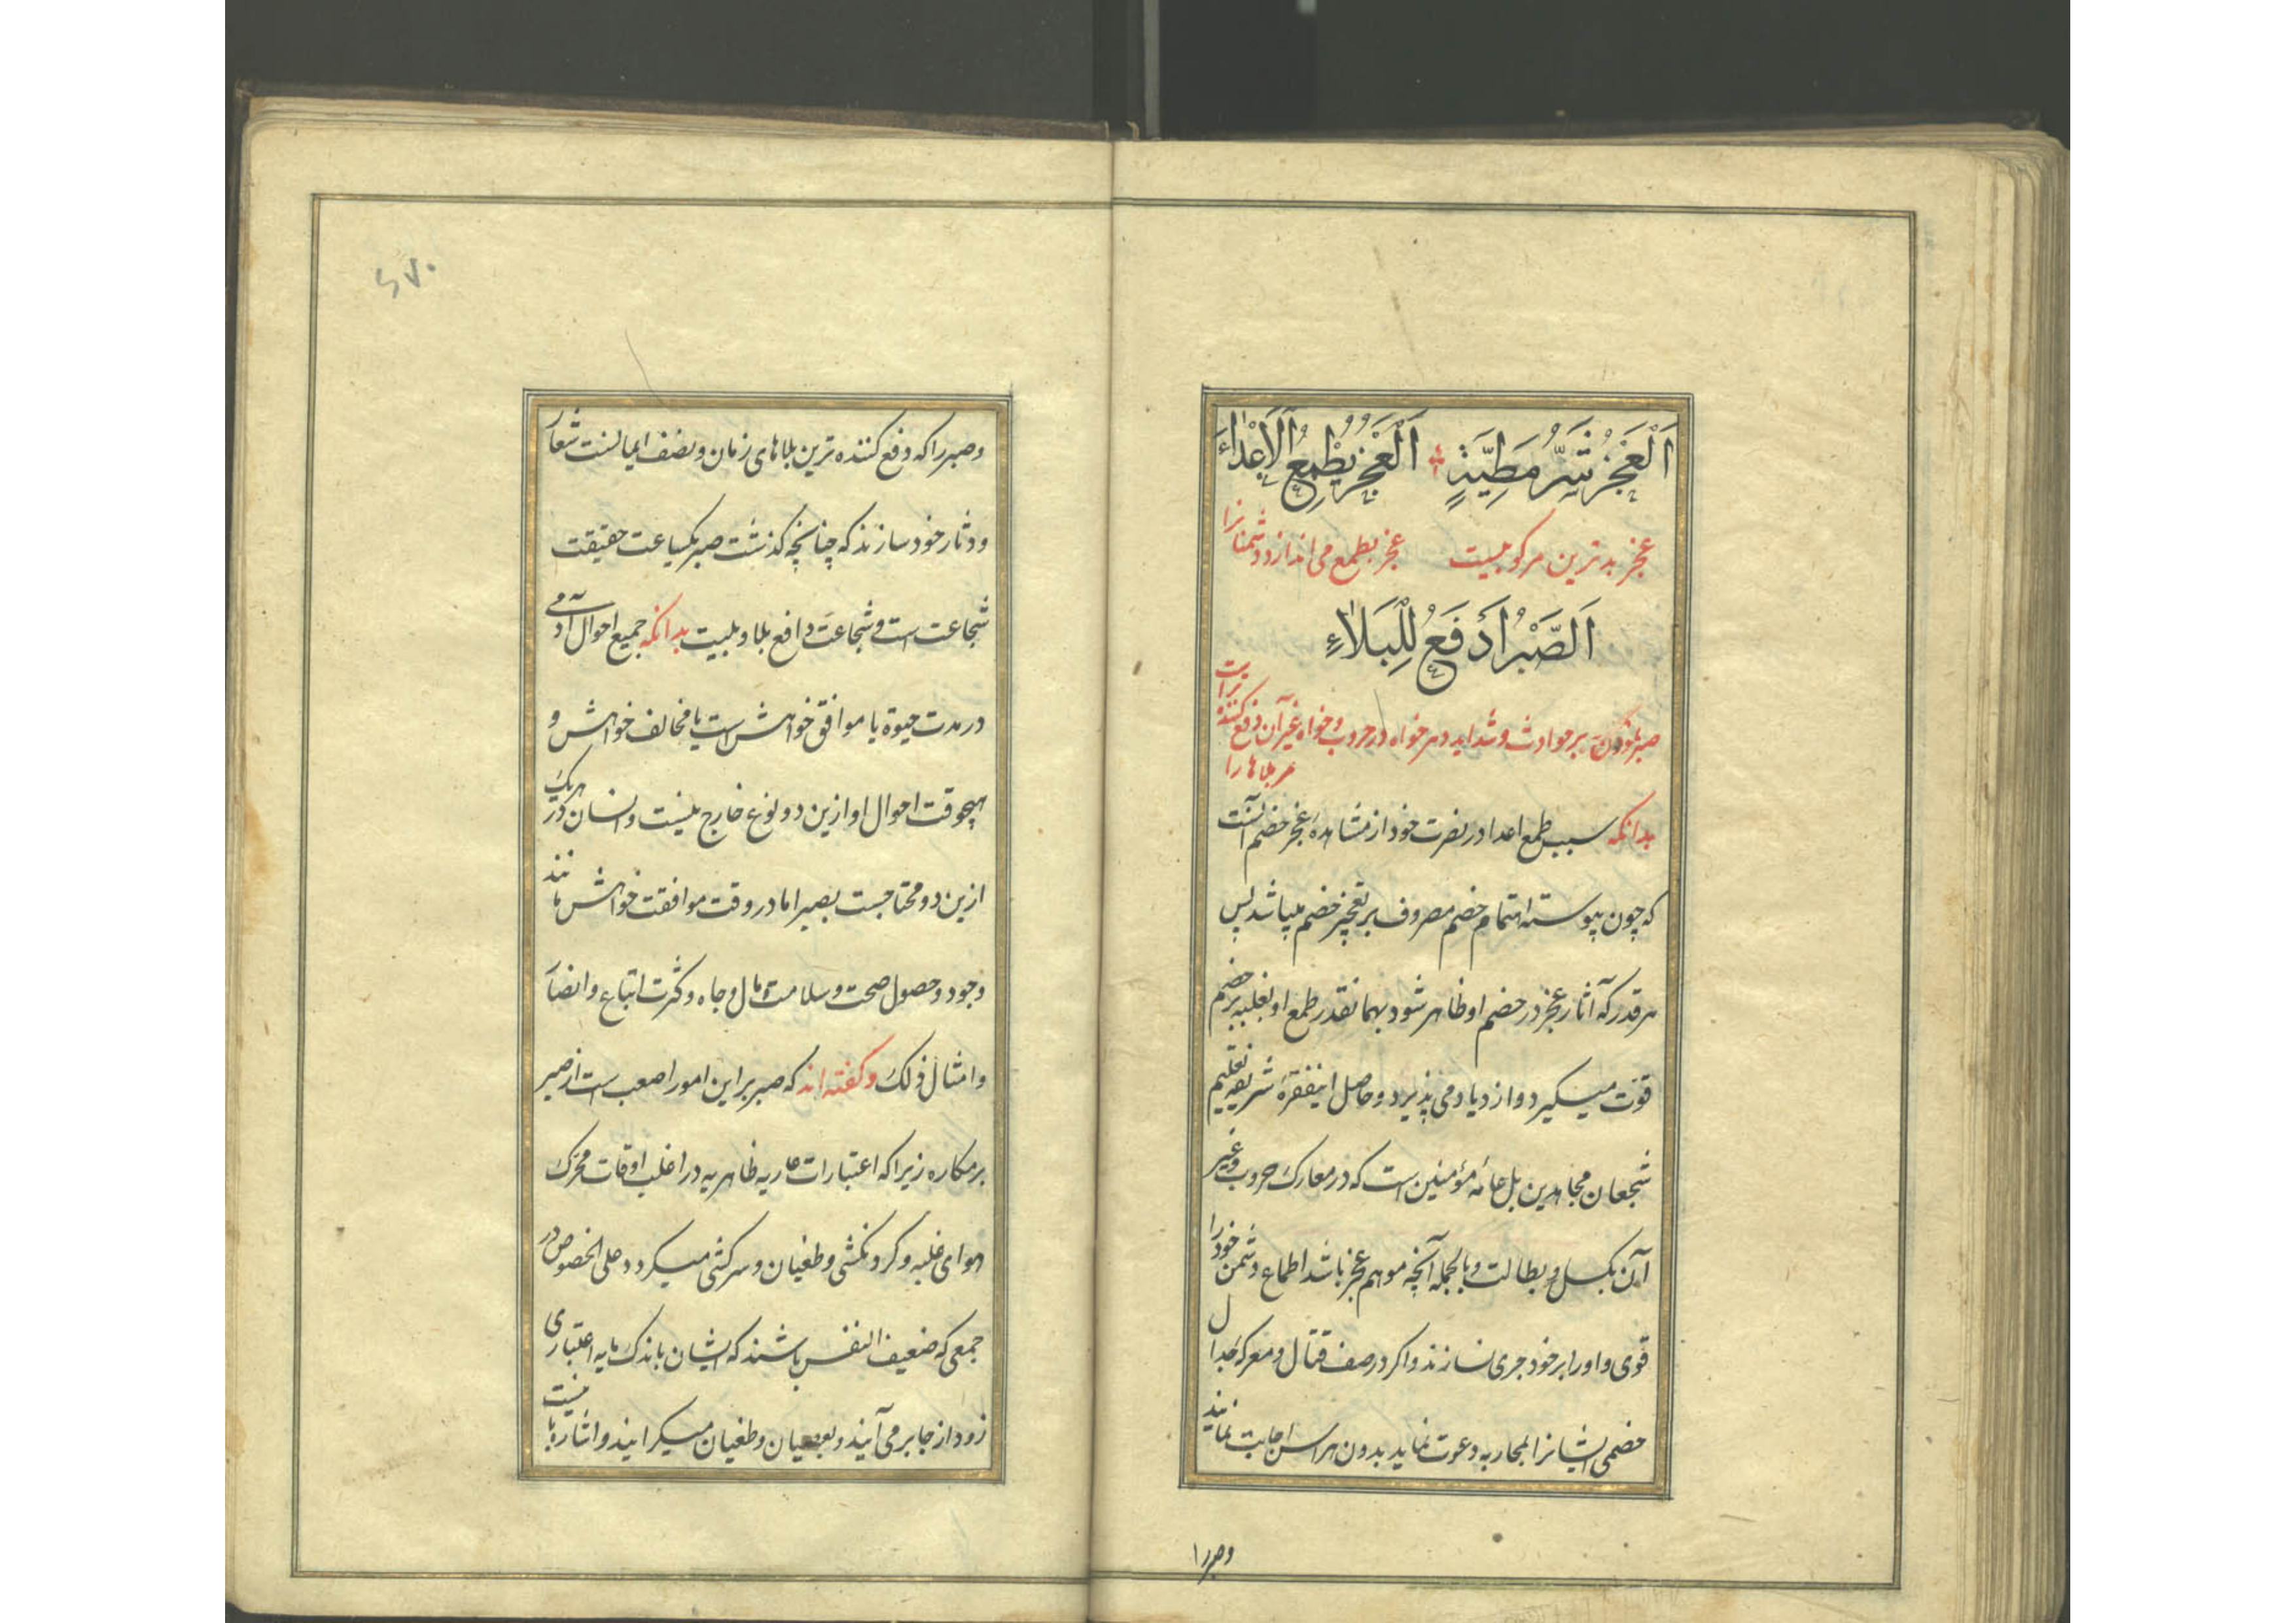 اَلْعَجْزُ شَرُّ مَطِيَّةٍ اَلْعَجْزُ يُطْمِعُ الْاَعْدَاءَ
عجز بدترین مرکوبیست عجز بطمع می اندازد دشمنانرا
اَلصَّبْرُ اَدْفَعُ لِلْبَلَاءِ
صبر نمودن بر حوادث و شداید دهر خواه در حروب و خواه غیر آن دفع کننده تراست
مر بلاها را
بدانکه سبب طمع اعدا در نصرت خود از مشاهده عجز خصم آنست
که چون پیوسته اهتمام خصم مصروف بر تعجیز خصم میباشد پس
هر قدر که آثار عجز در خصم او ظاهر شود بهمانقدر طمع او بغلبه بر خصم
قوت میگیرد و ازدیاد می پذیرد و حاصل اینفقره شریفه تعلیم
شجعان مجاهدین بل عامه مؤمنین است که در معارک حروب و غیر
آن بکسل و بطالت و بالجمله آنچه موهم عجز باشد اطماع دشمن خود را
قوی و او را بر خود جری نسازند و اگر در صف قتال و معرکه جدال
خصمی ایشانرا بمحاربه دعوت نماید بدون هراس اجابت نمایند
وصبر را
۲۷۰
و صبر را که دفع کننده ترین بلاهای زمان و نصف ایمانست شعار
و دثار خود سازند که چنانچه گذشت صبر یکساعت حقیقت
شجاعت است و شجاعت دافع بلا و بلیت بدانکه جمیع احوال آدمی
در مدت حیوة یا موافق خواهش است یا مخالف خواهش و
هیچوقت احوال او ازین دو نوع خارج نیست و انسان در هریک
ازین دو محتاجست بصبر اما در وقت موافقت خواهش مانند
وجود و حصول صحت و سلامت و مال و جاه و کثرت اتباع و انصار
و امثال ذلک و گفته اند که صبر بر این امور اصعب است از صبر
بر مکاره زیرا که اعتبارات عاریه ظاهریه در اغلب اوقات محرک
هوای غلبه و گردنکشی و طغیان و سرکشی میگردد علی الخصوص در
جمعی که ضعیف النفس باشند که ایشان باندک مایه اعتباری
زود از جا بر می آیند و بعصیان و طغیان میگرایند و اشاره با نیست